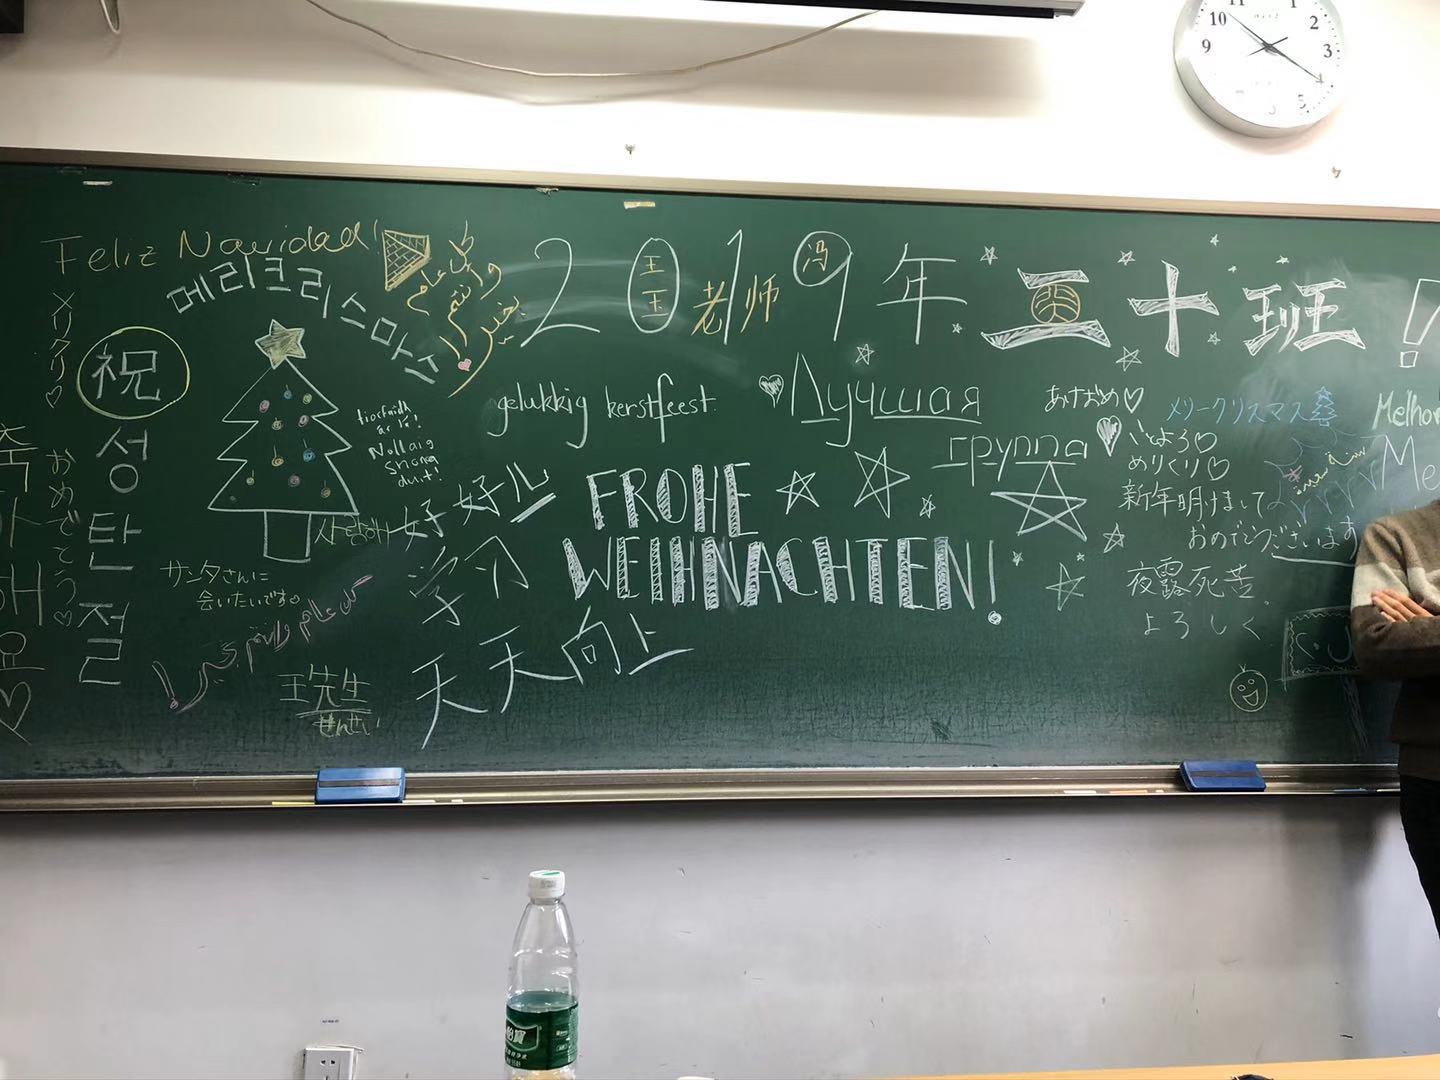 Feliz Navidad!
메리크리스마스
كل عام
وانتم
بخير
2019年二十班!
王
玉
老师
冯
メリクリ♡
おめでとう♡
祝
성
탄
절
축
하
해
요
♡
gelukkig kerstfeest.
Лучшая
группа
あけおめ♡
ことよろ♡
めりくり♡
新年明けまして
おめでとうございます
メリークリスマス
Melhor
Me
Nollaig
Shona
duit!
사랑해
好好
学习
天天向上
FROHE
WEIHNACHTEN!
サンタさんに
会いたいです。
كل عام وانتم بخير!
王先生
せんせい
夜露死苦。
よろしく
10 11 1 2 3 4 5 9
怡寶